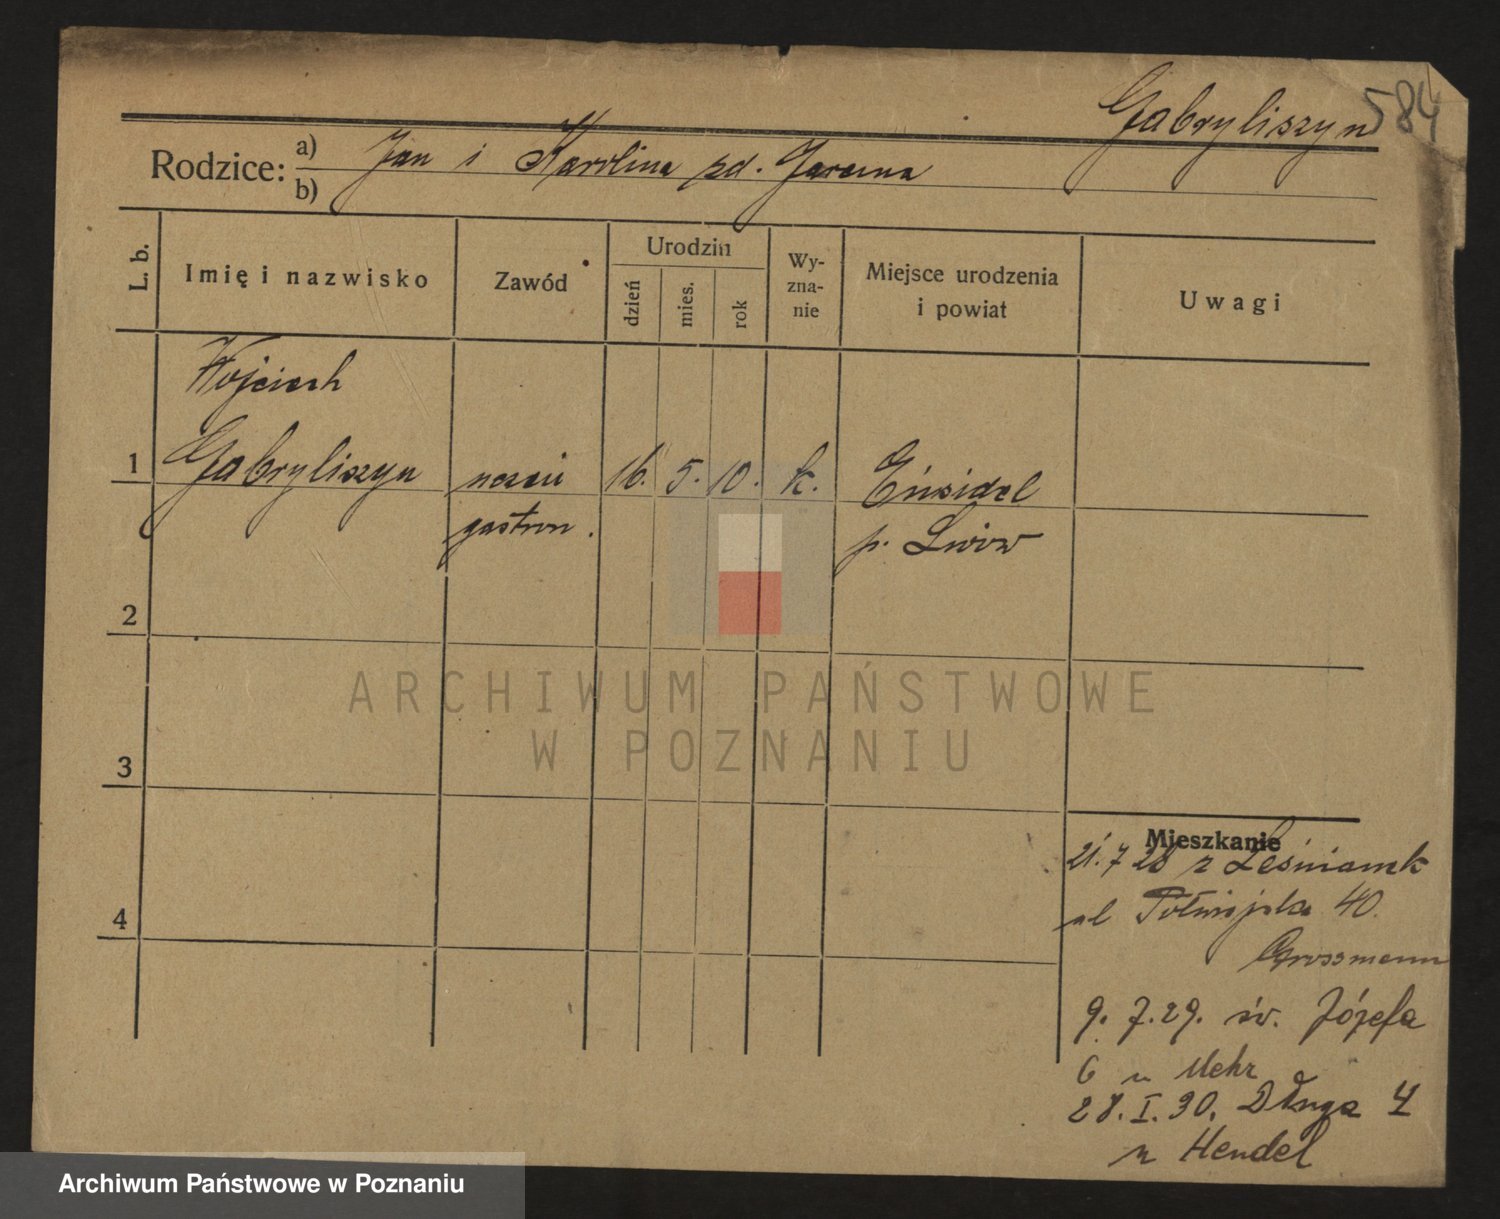 584
Gabryliszyn
Rodzice: a) Jan i Karolina zd. Jarema
b)
L. b. Imię i nazwisko Zawód Urodzin dzień mies. rok Wy-zna-nie Miejsce urodzenia i powiat Uwagi
Wojciech
1 Gabryliszyn uczeń 16. 5. 10. k. Einsidel
gastron. p. Lwów
2
ARCHIWUM PAŃSTWOWE
W POZNANIU
3
Mieszkanie
21.7 28 z
4
ul Półwiejska 40.
Grossmann
9. 7.29. św. Józefa
6 u Mehr
28.I.30. Długa 4
u Hendel
Archiwum Państwowe w Poznaniu